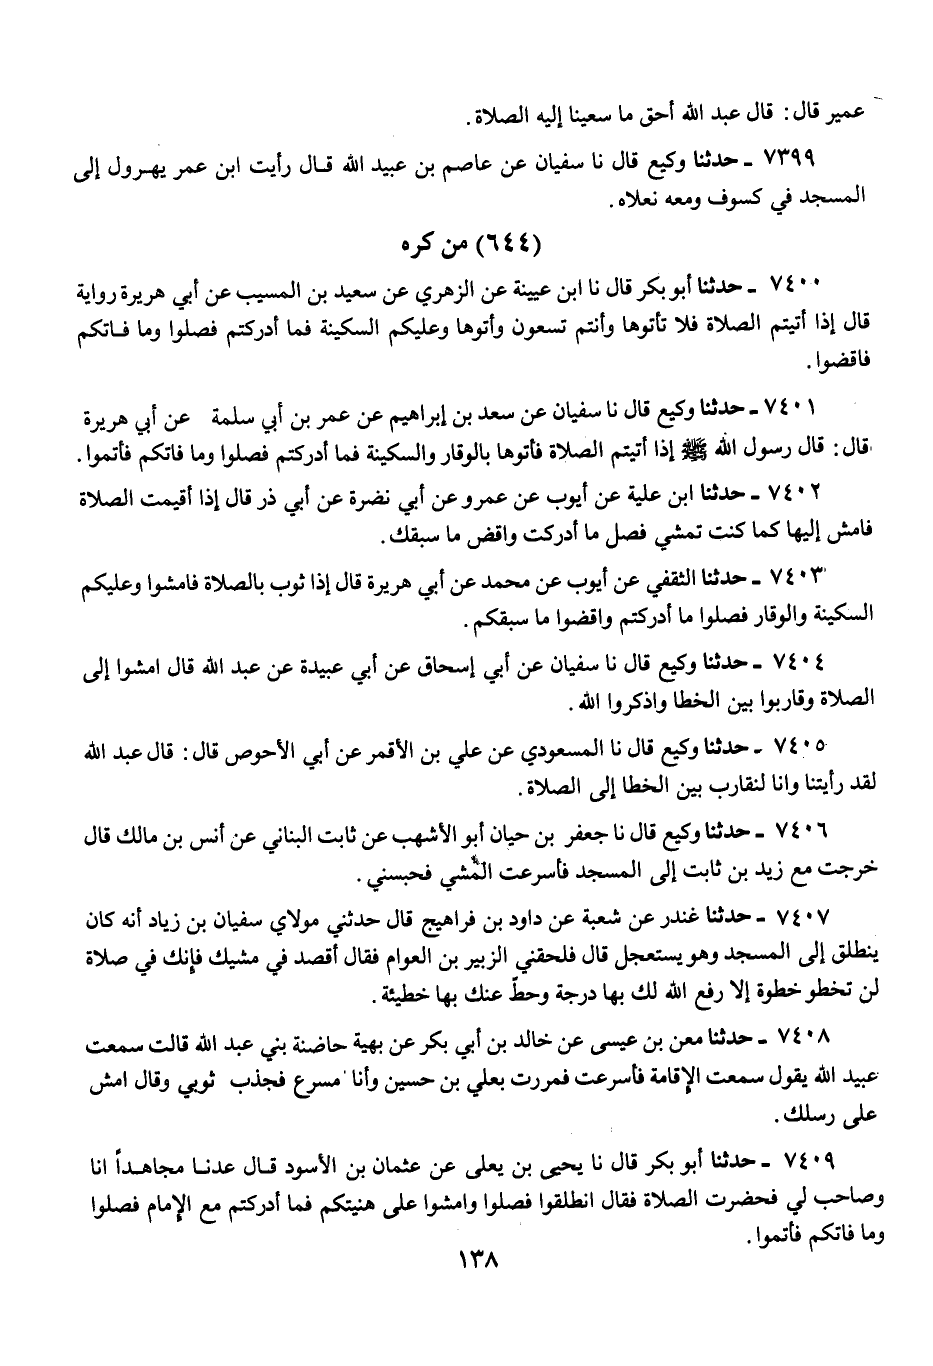 عمير قال: قال عبد الله أحق ما سعينا إليه الصلاة.
٧٣٩٩ ـ حدثنا وكيع قال نا سفيان عن عاصم بن عبيد الله قال رأيت ابن عمر يهرول إلى
المسجد في كسوف ومعه نعلاه.
(٦٤٤) من كره
٧٤٠٠ ـ حدثنا أبو بكر قال نا ابن عيينة عن الزهري عن سعيد بن المسيب عن أبي هريرة رواية
قال إذا أتيتم الصلاة فلا تأتوها وأنتم تسعون وأتوها وعليكم السكينة فما أدركتم فصلوا وما فاتكم
فاقضوا.
٧٤٠١ ـ حدثنا وكيع قال نا سفيان عن سعد بن إبراهيم عن عمر بن أبي سلمة عن أبي هريرة
قال: قال رسول الله ﷺ إذا أتيتم الصلاة فأتوها بالوقار والسكينة فما أدركتم فصلوا وما فاتكم فأتموا.
٧٤٠٢ ـ حدثنا ابن علية عن أيوب عن عمرو عن أبي نضرة عن أبي ذر قال إذا أقيمت الصلاة
فامش إليها كما كنت تمشي فصل ما أدركت واقض ما سبقك.
٧٤٠٣ ـ حدثنا الثقفي عن أيوب عن محمد عن أبي هريرة قال إذا ثوب بالصلاة فامشوا وعليكم
السكينة والوقار فصلوا ما أدركتم واقضوا ما سبقكم.
٧٤٠٤ ـ حدثنا وكيع قال نا سفيان عن أبي إسحاق عن أبي عبيدة عن عبد الله قال امشوا إلى
الصلاة وقاربوا بين الخطا واذكروا الله.
٧٤٠٥ ـ حدثنا وكيع قال نا المسعودي عن علي بن الأقمر عن أبي الأحوص قال: قال عبد الله
لقد رأيتنا وانا لنقارب بين الخطا إلى الصلاة.
٧٤٠٦ ـ حدثنا وكيع قال نا جعفر بن حيان أبو الأشهب عن ثابت البناني عن أنس بن مالك قال
خرجت مع زيد بن ثابت إلى المسجد فأسرعت المشي فحبسني.
٧٤٠٧ ـ حدثنا غندر عن شعبة عن داود بن فراهيج قال حدثني مولاي سفيان بن زياد أنه كان
ينطلق إلى المسجد وهو يستعجل قال فلحقني الزبير بن العوام فقال أقصد في مشيك فإنك في صلاة
لن تخطو خطوة إلا رفع الله لك بها درجة وحطّ عنك بها خطيئة.
٧٤٠٨ ـ حدثنا معن بن عيسى عن خالد بن أبي بكر عن بهية حاضنة بني عبد الله قالت سمعت
عبيد الله يقول سمعت الإقامة فأسرعت فمررت بعلي بن حسين وأنا مسرع فجذب ثوبي وقال امش
على رسلك.
٧٤٠٩ ـ حدثنا أبو بكر قال نا يحيى بن يعلى عن عثمان بن الأسود قال عدنا مجاهداً انا
وصاحب لي فحضرت الصلاة فقال انطلقوا فصلوا وامشوا على هنيتكم فما أدركتم مع الإمام فصلوا
وما فاتكم فأتموا.
١٣٨